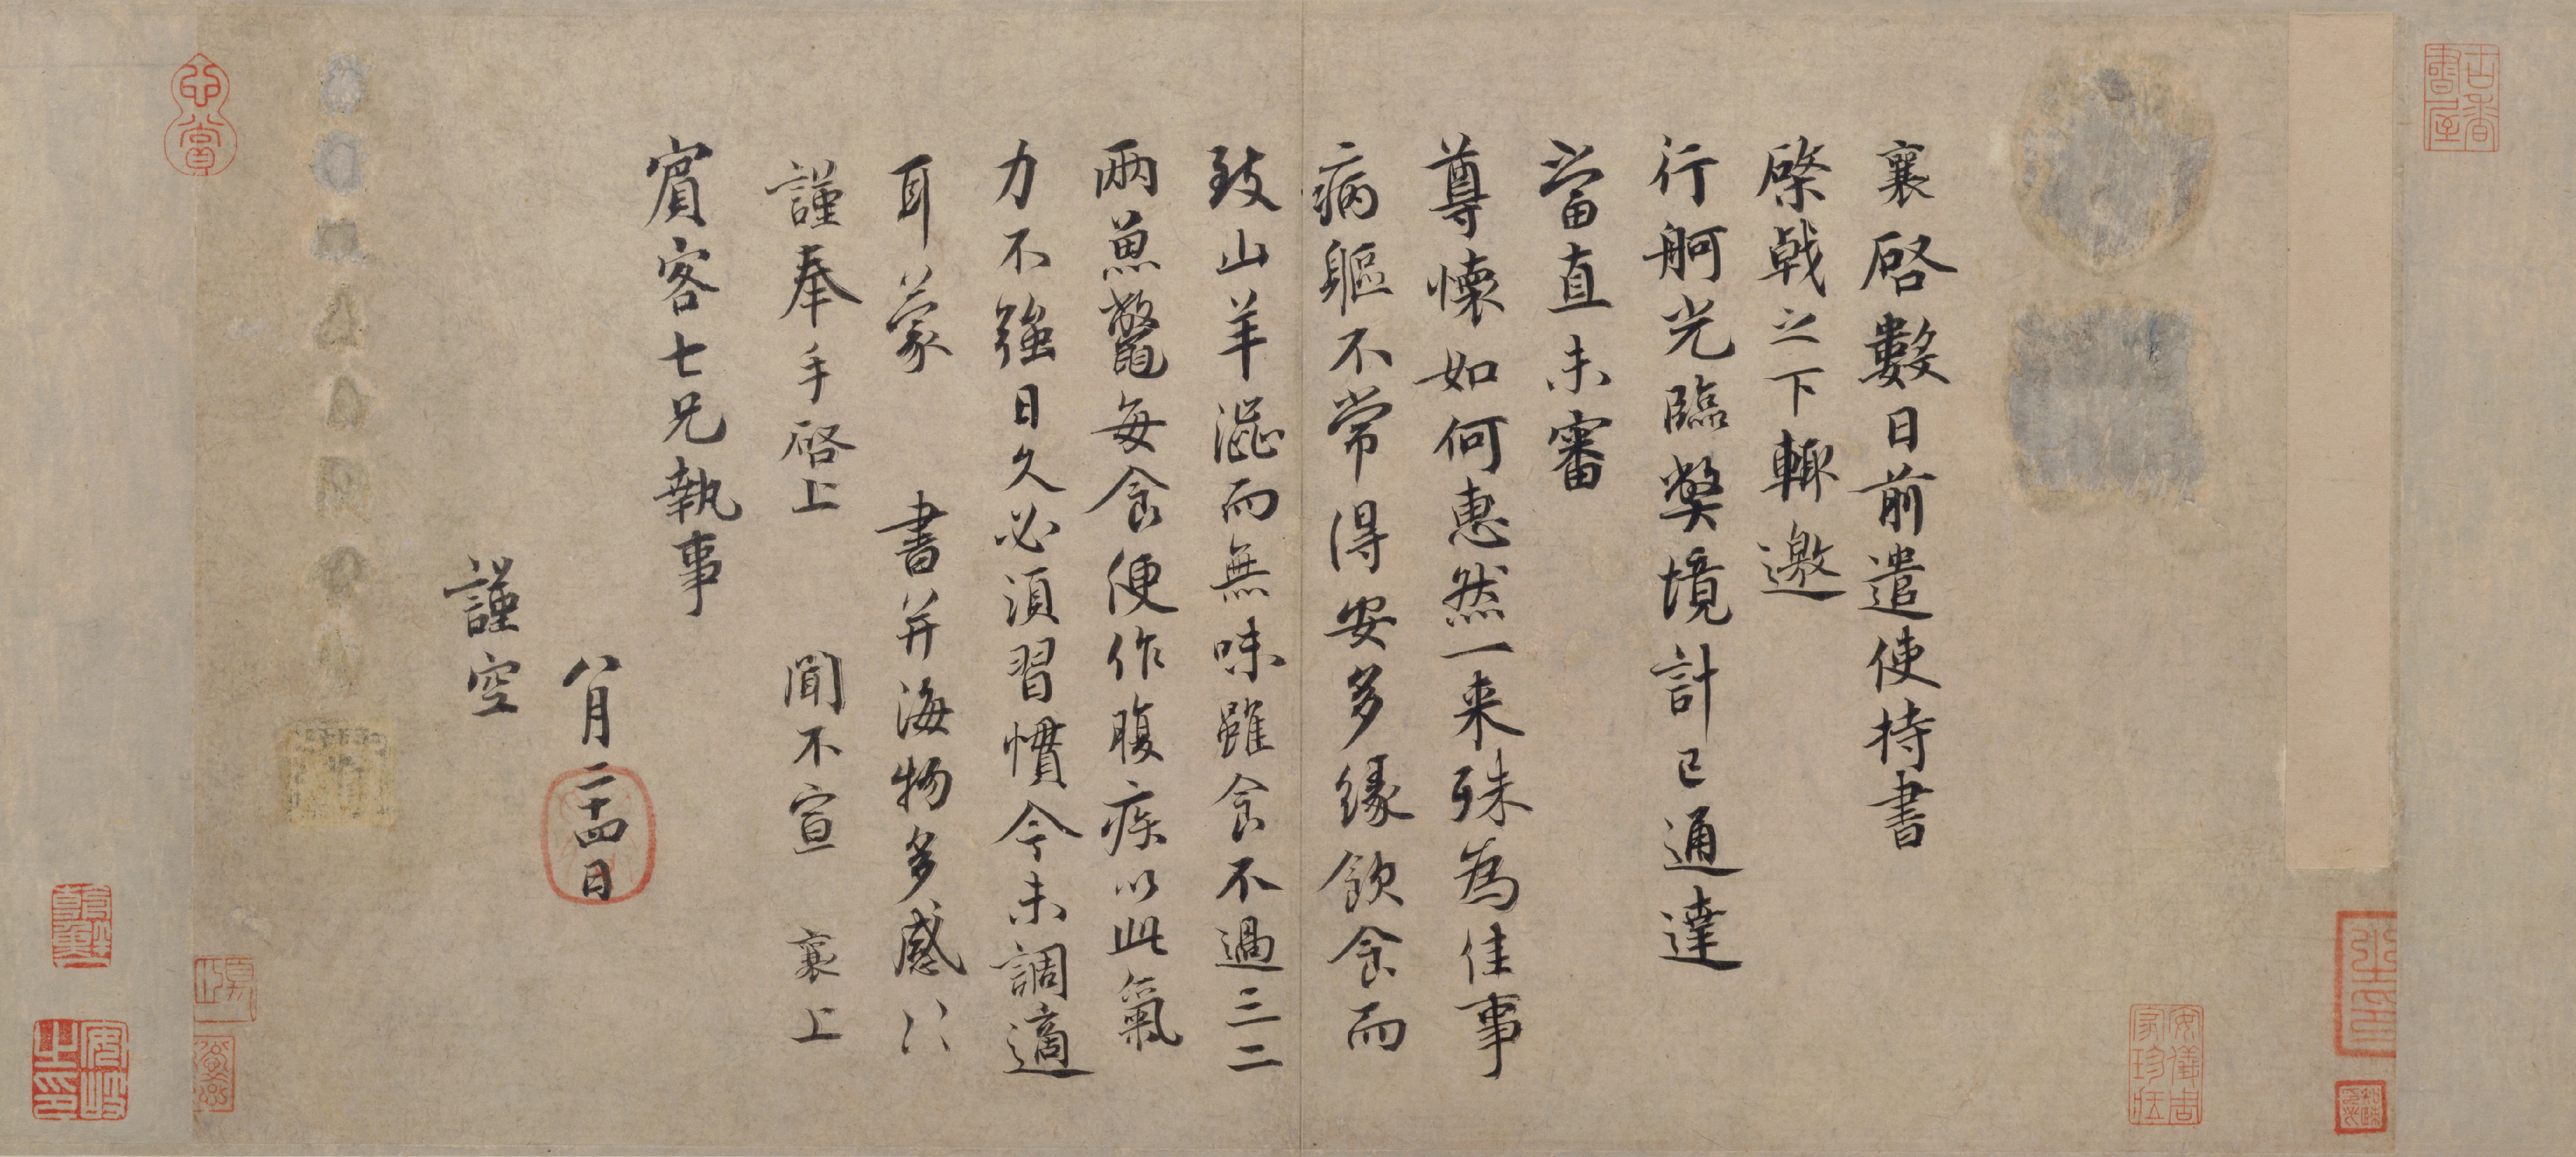 襄啓數日前遣使持書
棨戟之下輙邀
行舸光臨獘境計已通達
當直未審
尊懷如何惠然一来殊為佳事
病軀不常得安多緣飲食而
致山羊澁而無味雖食不過三二
兩魚鼈每食便作腹疾以此氣
力不強日久必須習慣今未調適
耳蒙 書并海物多感〻
謹奉手啓上 聞不宣 襄上
賔客七兄執事
八月二十四日
謹空
古香書屋
安儀周家珍藏
心賞
安岐之印